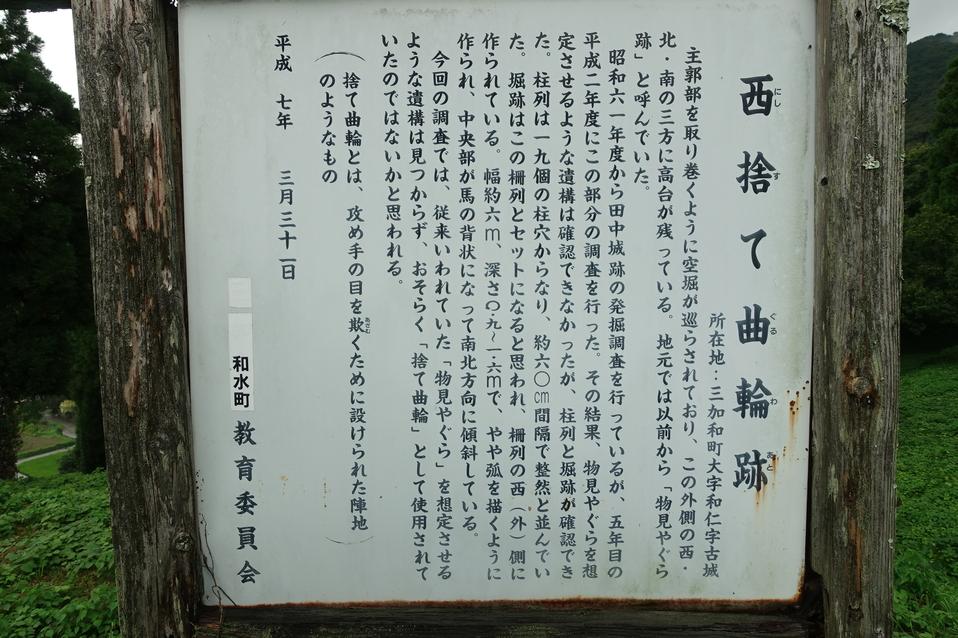 西捨て曲輪跡
にし す ぐる わ あと
所在地：三加和町大字和仁字古城
主郭部を取り巻くように空堀が巡らされており、この外側の西・
北・南の三方に高台が残っている。地元では以前から「物見やぐら
跡」と呼んでいた。
昭和六一年度から田中城跡の発掘調査を行っているが、五年目の
平成二年度にこの部分の調査を行った。その結果、物見やぐらを想
定させるような遺構は確認できなかったが、柱列と堀跡が確認でき
た。柱列は一九個の柱穴からなり、約六〇cm間隔で整然と並んでい
た。堀跡はこの柵列とセットになると思われ、柵列の西（外）側に
作られている。幅約六m、深さ〇・九〜一・六mで、やや弧を描くように
作られ、中央部が馬の背状になって南北方向に傾斜している。
今回の調査では、従来いわれていた「物見やぐら」を想定させる
ような遺構は見つからず、おそらく「捨て曲輪」として使用されて
いたのではないかと思われる。
（捨て曲輪とは、攻め手の目を欺くために設けられた陣地
あざむ
のようなもの）
平成 七年 三月三十一日
和水町教育委員会